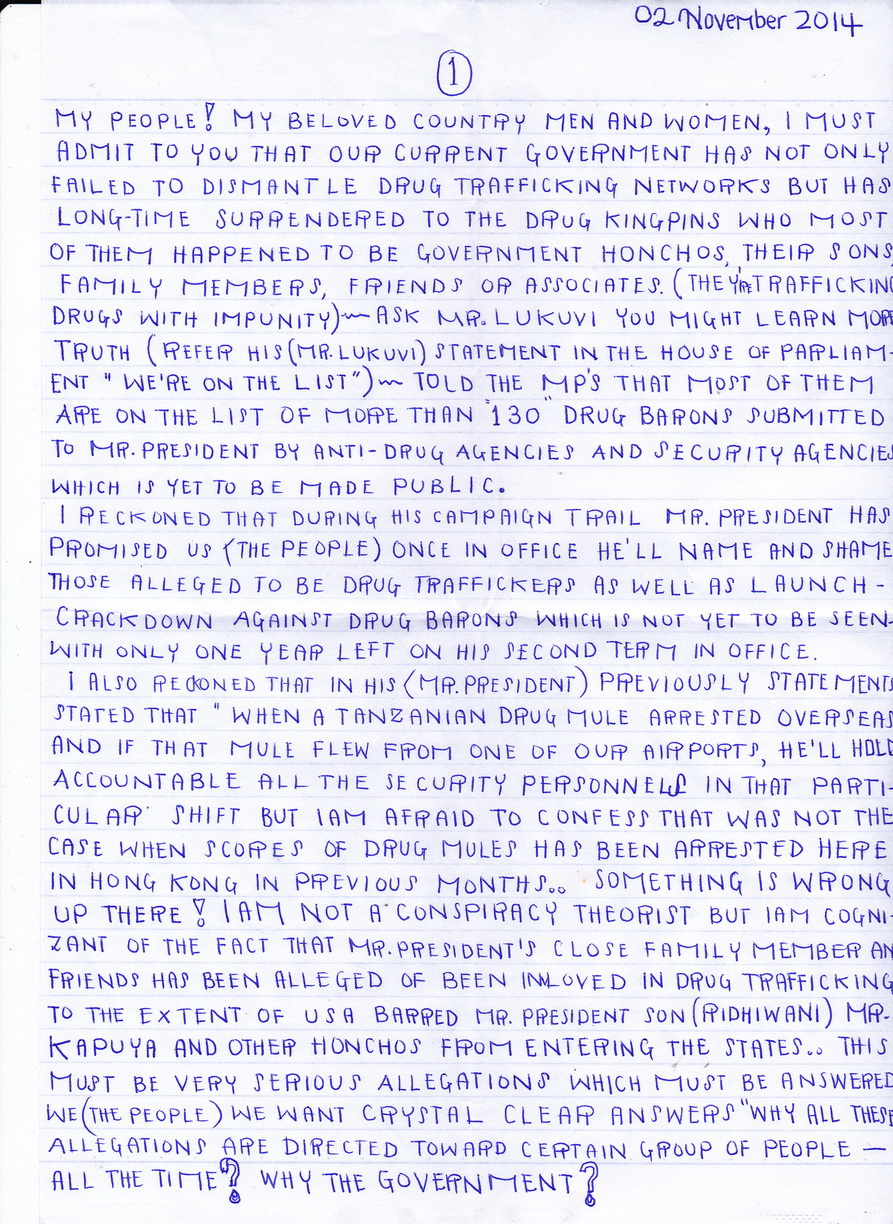 02 November 2014
1
MY PEOPLE! MY BELOVED COUNTRY MEN AND WOMEN, I MUST
ADMIT TO YOU THAT OUR CURRENT GOVERNMENT HAS NOT ONLY
FAILED TO DISMANTLE DRUG TRAFFICKING NETWORKS BUT HAS
LONG-TIME SURRENDERED TO THE DRUG KINGPINS WHO MOST
OF THEM HAPPENED TO BE GOVERNMENT HONCHOS, THEIR SONS,
FAMILY MEMBERS, FRIENDS OR ASSOCIATES. (THEY'RE TRAFFICKING
DRUGS WITH IMPUNITY)~ASK MR. LUKUVI YOU MIGHT LEARN MORE
TRUTH (REFER HIS (MR. LUKUVI) STATEMENT IN THE HOUSE OF PARLIAM-
ENT "WE'RE ON THE LIST")~ TOLD THE MP'S THAT MOST OF THEM
ARE ON THE LIST OF MORE THAN "130" DRUG BARONS SUBMITTED
TO MR. PRESIDENT BY ANTI-DRUG AGENCIES AND SECURITY AGENCIES
WHICH IS YET TO BE MADE PUBLIC.
I RECKONED THAT DURING HIS CAMPAIGN TRAIL MR. PRESIDENT HAS
PROMISED US (THE PEOPLE) ONCE IN OFFICE HE'LL NAME AND SHAME
THOSE ALLEGED TO BE DRUG TRAFFICKERS AS WELL AS LAUNCH-
CRACKDOWN AGAINST DRUG BARONS WHICH IS NOT YET TO BE SEEN-
WITH ONLY ONE YEAR LEFT ON HIS SECOND TERM IN OFFICE.
I ALSO RECKONED THAT IN HIS (MR. PRESIDENT) PREVIOUSLY STATEMENTS
STATED THAT "WHEN A TANZANIAN DRUG MULE ARRESTED OVERSEAS
AND IF THAT MULE FLEW FROM ONE OF OUR AIRPORTS, HE'LL HOLD
ACCOUNTABLE ALL THE SECURITY PERSONNELS IN THAT PARTI-
CULAR SHIFT BUT I AM AFRAID TO CONFESS THAT WAS NOT THE
CASE WHEN SCORES OF DRUG MULES HAS BEEN ARRESTED HERE
IN HONG KONG IN PREVIOUS MONTHS.. SOMETHING IS WRONG
UP THERE! I AM NOT A CONSPIRACY THEORIST BUT I AM COGNI-
ZANT OF THE FACT THAT MR. PRESIDENT'S CLOSE FAMILY MEMBER AN
FRIENDS HAS BEEN ALLEGED OF BEEN INVLOVED IN DRUG TRAFFICKING
TO THE EXTENT OF USA BARRED MR. PRESIDENT SON (RIDHIWANI) MR-
KAPUYA AND OTHER HONCHOS FROM ENTERING THE STATES.. THIS
MUST BE VERY SERIOUS ALLEGATIONS WHICH MUST BE ANSWERED
WE (THE PEOPLE) WE WANT CRYSTAL CLEAR ANSWERS "WHY ALL THESE
ALLEGATIONS ARE DIRECTED TOWARD CERTAIN GROUP OF PEOPLE —
ALL THE TIME? WHY THE GOVERNMENT?